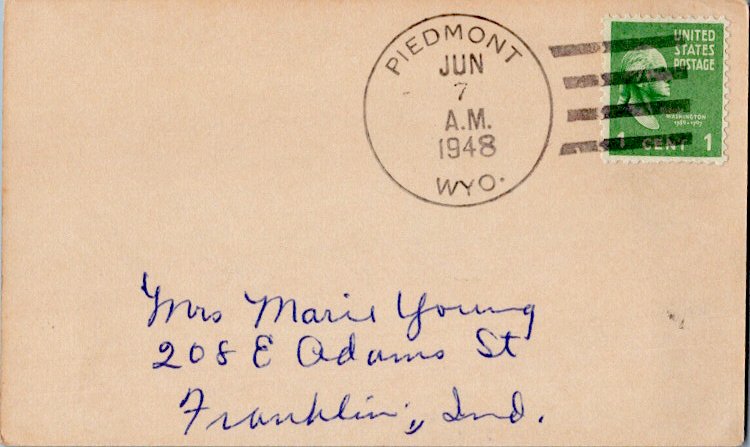 PIEDMONT
JUN
7
A.M.
1948
WYO.
UNITED
STATES
POSTAGE
WASHINGTON
1789-1797
1 CENT 1
Mrs Marie Young
208 E Adams St
Franklin, Ind.